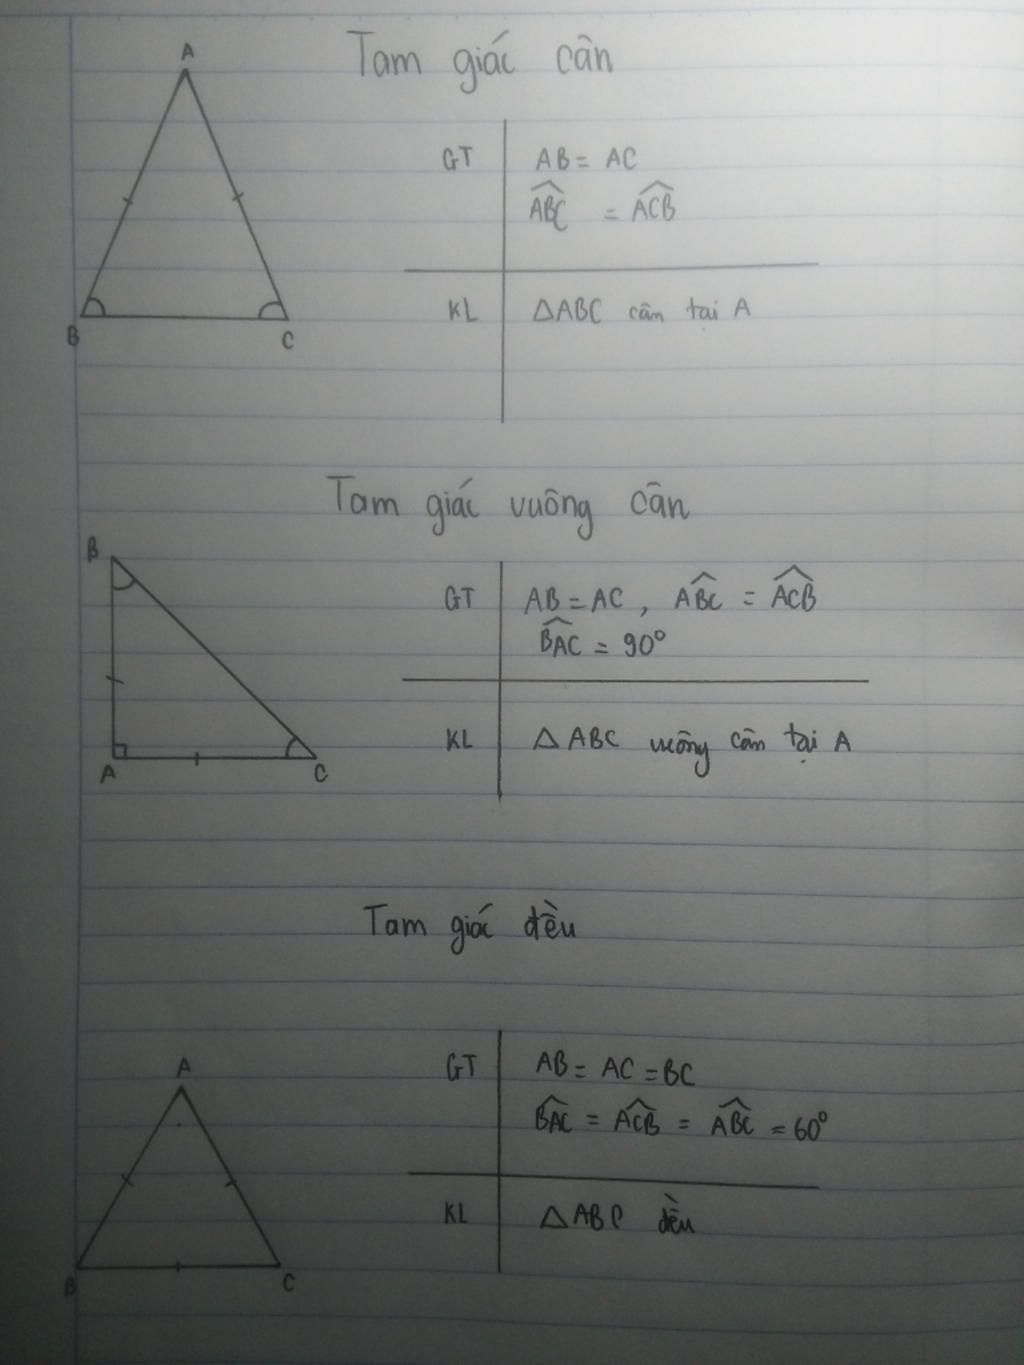 Tam giác cân
A
GT AB = AC
\widehat{ABC} = \widehat{ACB}
KL △ABC cân tại A
B C
Tam giác vuông cân
B
GT AB = AC, \widehat{ABC} = \widehat{ACB}
\widehat{BAC} = 90°
KL △ABC vuông cân tại A
A C
Tam giác đều
A
GT AB = AC = BC
\widehat{BAC} = \widehat{ACB} = \widehat{ABC} = 60°
KL △ABC đều
B C